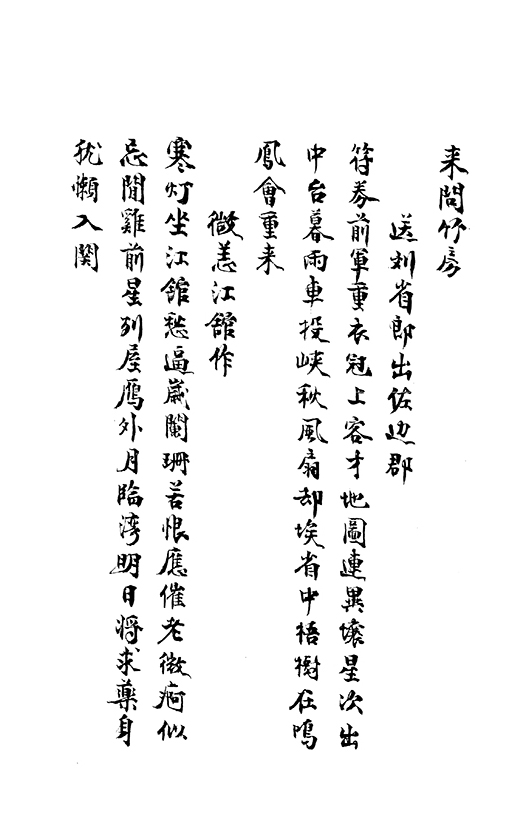 来問竹房
送刘省郎出佐边郡
符券前軍重衣冠上客才地圖連異壤星次出
中台暮雨車投峽秋風扇却埃省中梧樹在鳴
鳳會重来
微恙江舘作
寒灯坐江舘愁逼歲闌珊若恨應催老微痾似
忌閒雞前星列屋鴈外月臨湾明日将求藥身
犹懶入関